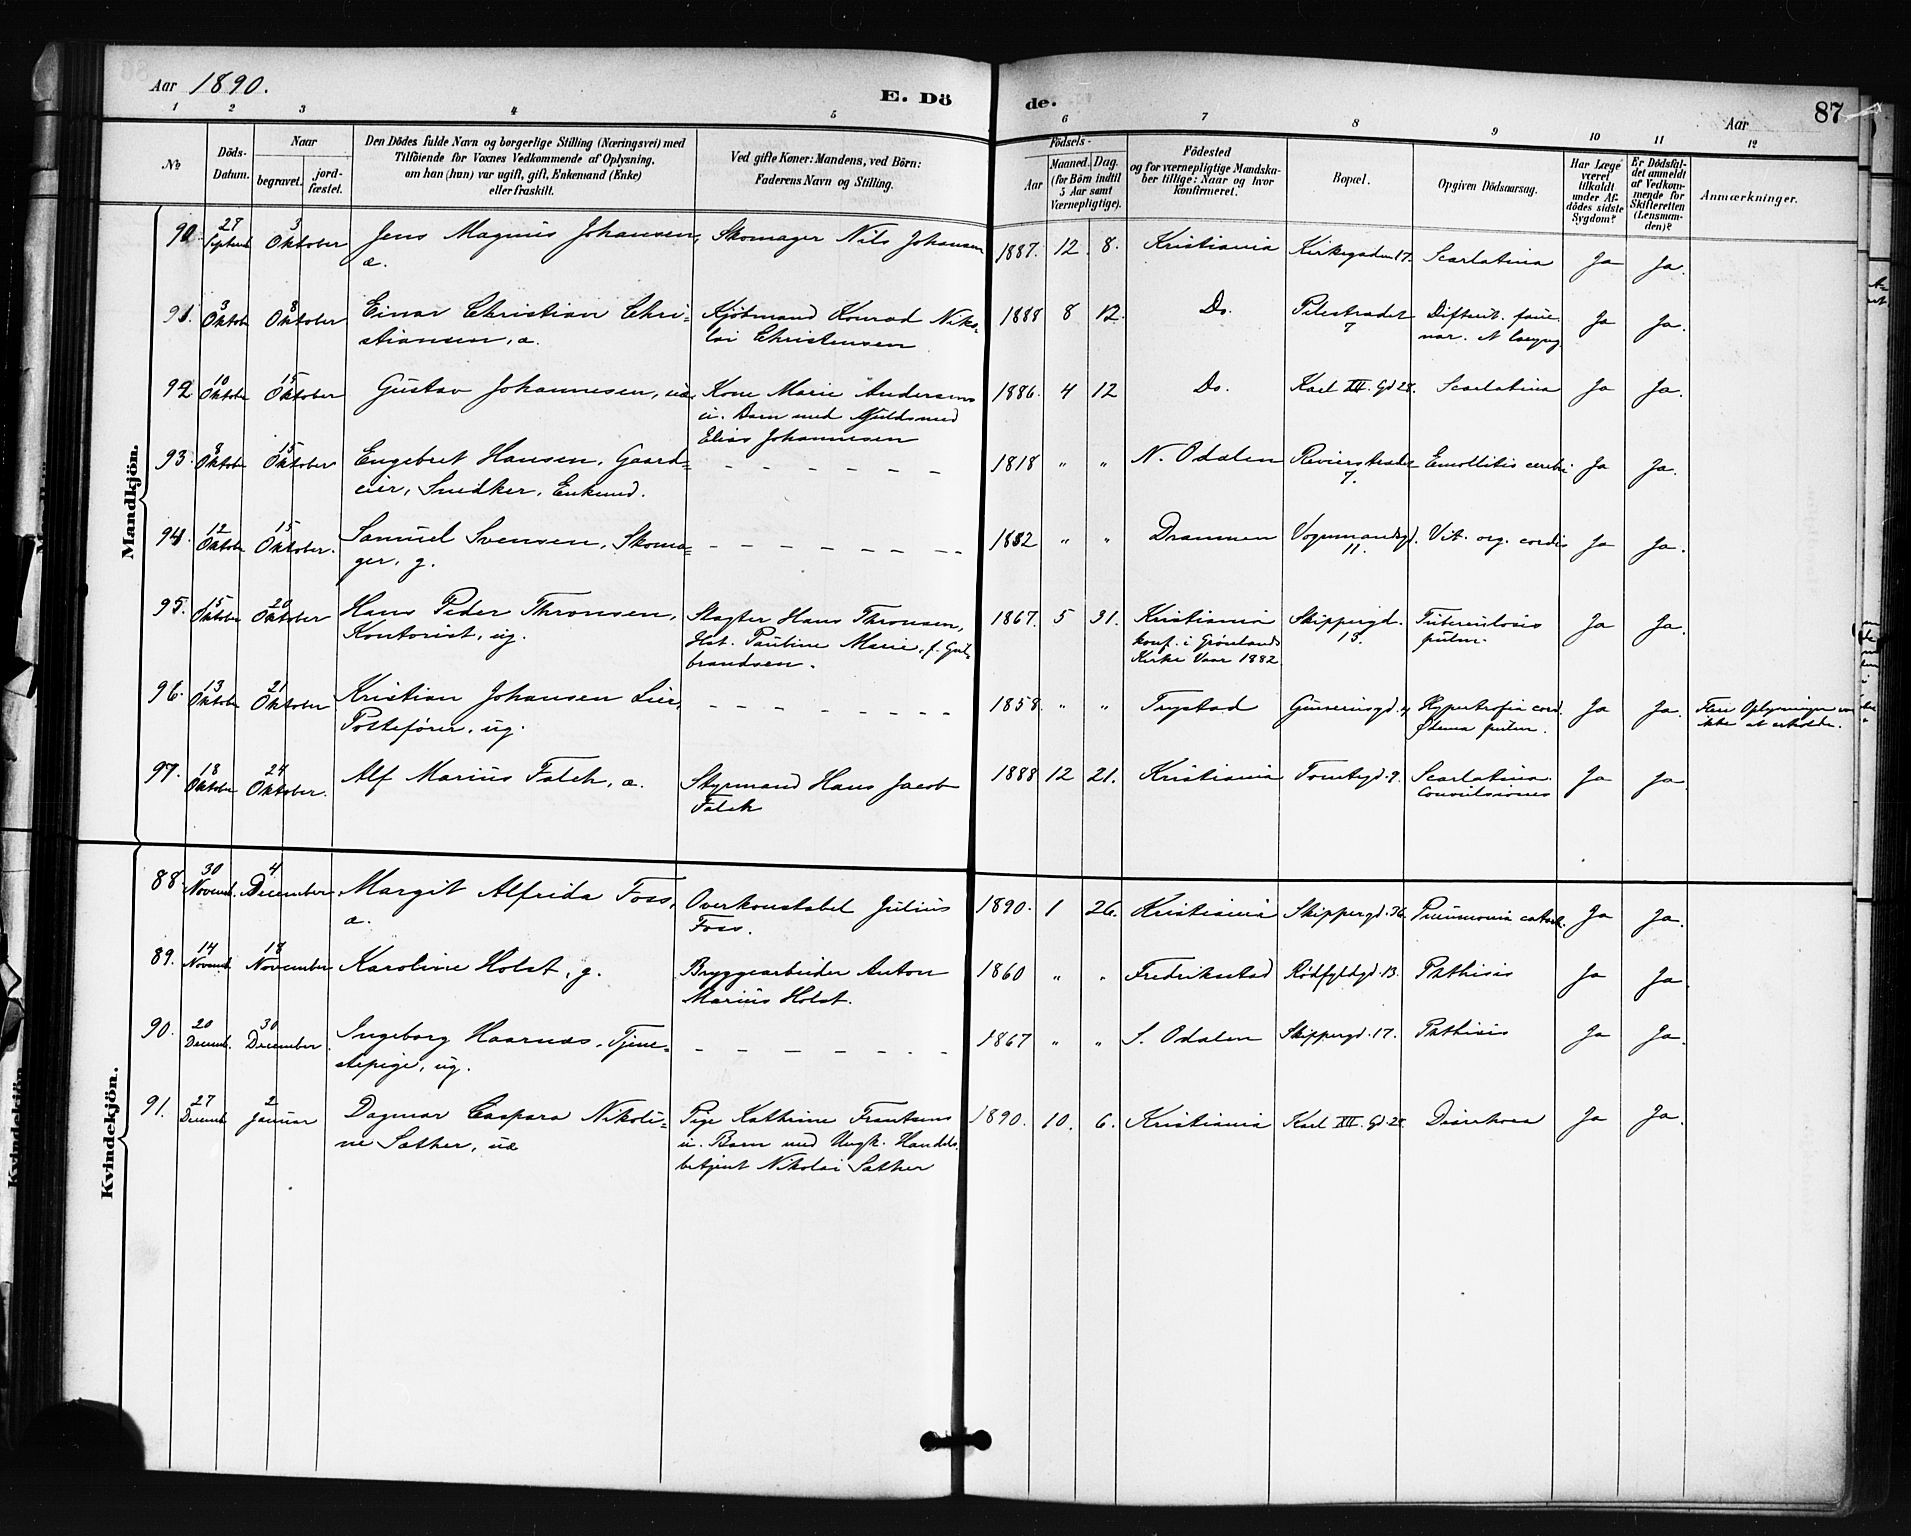 Aar 1890.
E. Dö
de.
Aar
87
1 2 3 4 5 6 7 8 9 10 11 12
No
Döds-Datum.
Naar
begravet.
jord-fæstet.
Den Dödes fulde Navn og borgerlige Stilling (Næringsvei) med
Tilföiende for Voxnes Vedkommende af Oplysning,
om han (hun) var ugift, gift, Enkemand (Enke)
eller fraskilt.
Ved gifte Koner: Mandens, ved Börn:
Faderens Navn og Stilling.
Födsels-
Aar
Maaned. Dag.
(for Börn indtil
5 Aar samt
Værnepligtige).
Födested
og for værnepligtige Mandska-
ber tillige: Naar og hvor
konfirmeret.
Bopæl.
Opgiven Dödsaarsag.
Har Læge
været
tilkaldt
under Af-
dödes sidste
Sygdom?
Er Dödsfal-
det anmeldt
af Vedkom-
mende for
Skifteretten
(Lensman-
den)?
Anmærkninger.
Mandkjön.
90. 28 Septemb 3 Oktober Jens Magnus Johansen, Skomager Nils Johansen 1887. 12 8. Kristiania Kirkegaden 17. Scarlatina Ja Ja.
æ.
91. 3 Oktob 8 Oktober Einar Christian Chri= Kjöbmand Konrad Niko= 1888 8 12. Do. Pilestrædet Difterit. fauc Ja Ja.
stiansen, æ. lai Christensen 7 nar.
92 10 Oktobr 15 Oktober Gustav Johannesen, uæ, Kone Marie Andersens 1886. 4 12 Do. Karl XII. Gd 28. Scarlatina Ja Ja.
u. Barn med Guldsmed
Elias Johannesen
93. 9 Oktobr 15 Oktober Engebret Hansen, Gaard= – – – – – – – 1818 " " N. Odalen Revierstrædet Emollitio cerebri Ja Ja.
eier, Snedker, Enkemd. 7.
94. 12 Oktobr 15 Oktober. Samuel Svensen, Skoma= – – – – – – – – " " Drammen Vognmandsgd. Vit. org. cordis Ja Ja.
ger, g. 11.
95. 15 Oktober 20 Oktober Hans Peder Thronsen, Slagter Hans Thronsen, 1867. 5 31. Kristiania Skippergd. Tuberculosis Ja Ja.
Kontorist, ug. Hst. Pauline Marie, f. Gul= konf. i Grønlands 15. pulm.
brandsen. Kirke Vaar 1882
96. 13 Oktober 21 Oktober Kristian Johansen Lier, – – – – – – – – 1858. " " Trystad Hypertrofia cord. Ja Ja. Flere Oplysninger var
Postefører, ug. Ødema pulm. ikke at erholde.
97. 18 Oktober 24 Oktober. Alf Marius Falch, æ. Styrmand Hans Jacob 1888 12 21. Kristiania Tomtegd. 9. Scarlatina. Ja Ja.
Falch Convulsiones
Kvindekjön.
88 30 Novemb. 4 December Margit Alfrida Foss, Overkonstabel Julius 1890. 1 26. Kristiania Skippergd. 36. Pneumonia catarh. Ja Ja.
æ. Foss.
89. 14 Novemb 18 November Karoline Holst, g. Bryggearbeider Anton 1860 " " Fredrikstad Rödfyldgd. 13. Phthisis Ja Ja.
Marius Holst.
90. 20 Decemb. 30 December Ingeborg Haarnæs, Tjene= – – – – – – – – 1867 " " S. Odalen Skippergd. 17. Phthisis Ja Ja.
stepige, ug.
91. 27 Decemb 2 Januar Dagmar Caspara Nikoli= Pige Kathrine Frantsens 1890. 10. 6. Kristiania Karl XII. Gd. 28 Diarrhoea Ja Ja.
ne Sæther, uæ u. Barn med Ungk. Handels
betjent Nikolai Sæther